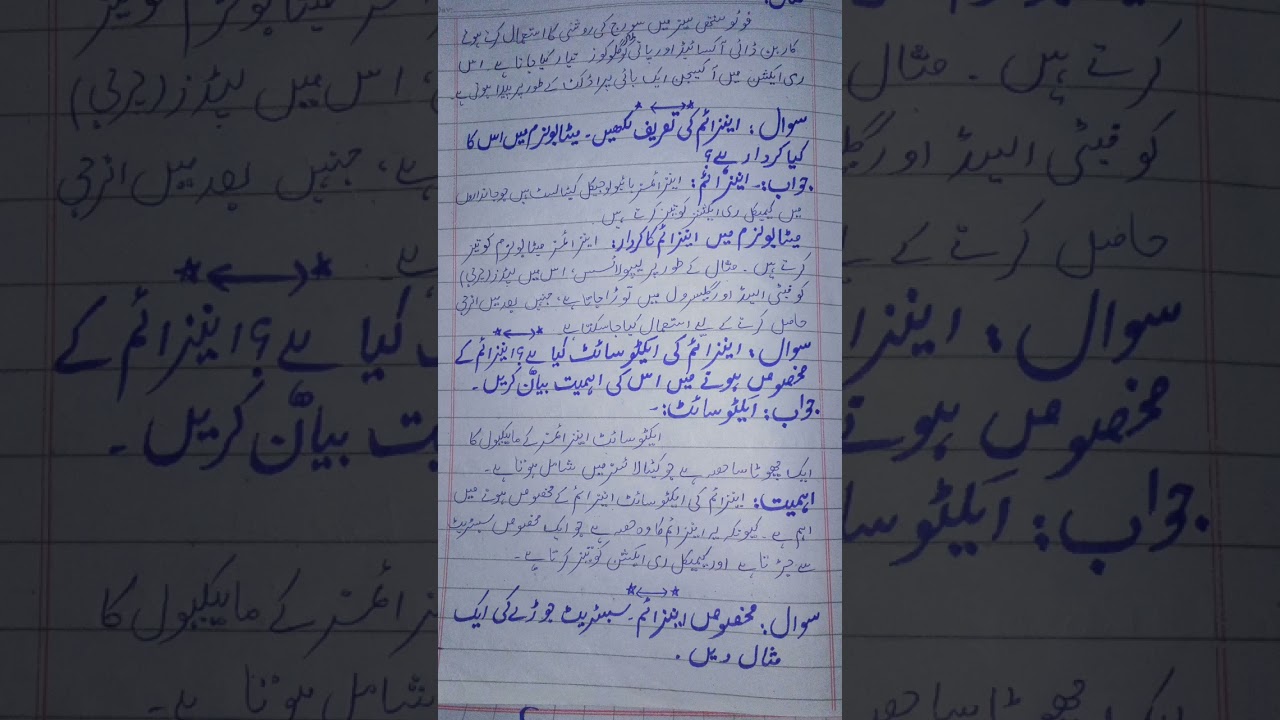 فوٹوسنتھی سیز میں سورج کی روشنی کا استعمال کرتے ہوئے
کاربن ڈائی آکسائیڈ اور پانی گلوکوز تیار کیا جاتا ہے اس
ری ایکشن میں آکسیجن ایک بائی پراڈکٹ کے طور پر پیدا ہوتی ہے
سوال: اینزائم کی تعریف لکھیں۔ میٹابولزم میں اس کا
کیا کردار ہے؟
جواب:۔ اینزائم: اینزائمز بائیولوجیکل کیٹالسٹ ہیں جو جانداروں
میں کیمیکل ری ایکشنز کو تیز کرتے ہیں
میٹابولزم میں اینزائم کا کردار: اینزائمز میٹابولزم کو تیز
کرتے ہیں۔ مثال کے طور پر لیپولائسس، اس میں لپڈز (چربی)
کو فیٹی ایسڈ اور گلیسرول میں توڑا جاتا ہے، جنہیں بعد میں انرجی
حاصل کرنے کے لیے استعمال کیا جا سکتا ہے
سوال: اینزائم کی ایکٹو سائٹ کیا ہے؟ اینزائم کے
مخصوص ہونے میں اس کی اہمیت بیان کریں۔
جواب: ایکٹو سائٹ:۔
ایکٹو سائٹ اینزائمز کے مالیکیول کا
ایک چھوٹا سا حصہ ہے جو کیٹالائسز میں شامل ہوتا ہے۔
اہمیت: اینزائم کی ایکٹو سائٹ اینزائم کے مخصوص ہونے میں
اہم ہے۔ کیونکہ یہ اینزائم کا وہ حصہ ہے جو ایک مخصوص سبسٹریٹ
سے جڑتا ہے اور کیمیکل ری ایکشن کو تیز کرتا ہے۔
سوال: مخصوص اینزائم۔سبسٹریٹ جوڑے کی ایک
مثال دیں۔